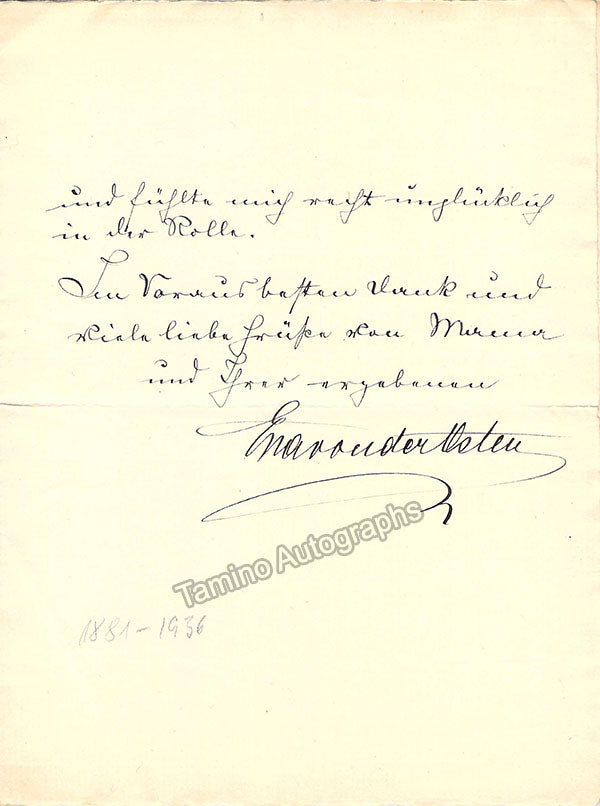 und fühlte mich recht unglücklich
in der Rolle.
Im Voraus besten Dank und
viele liebe Grüße von Mama
und Ihrer ergebenen
Eva von der Osten
Tamino Autographs
1881-1936